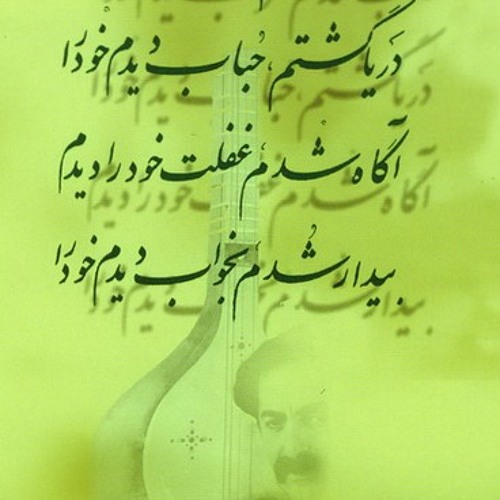 دریا گشتم، حباب دیدم خود را
آگاه شدم، غفلت خود را دیدم
بیدار شدم بخواب دیدم خود را